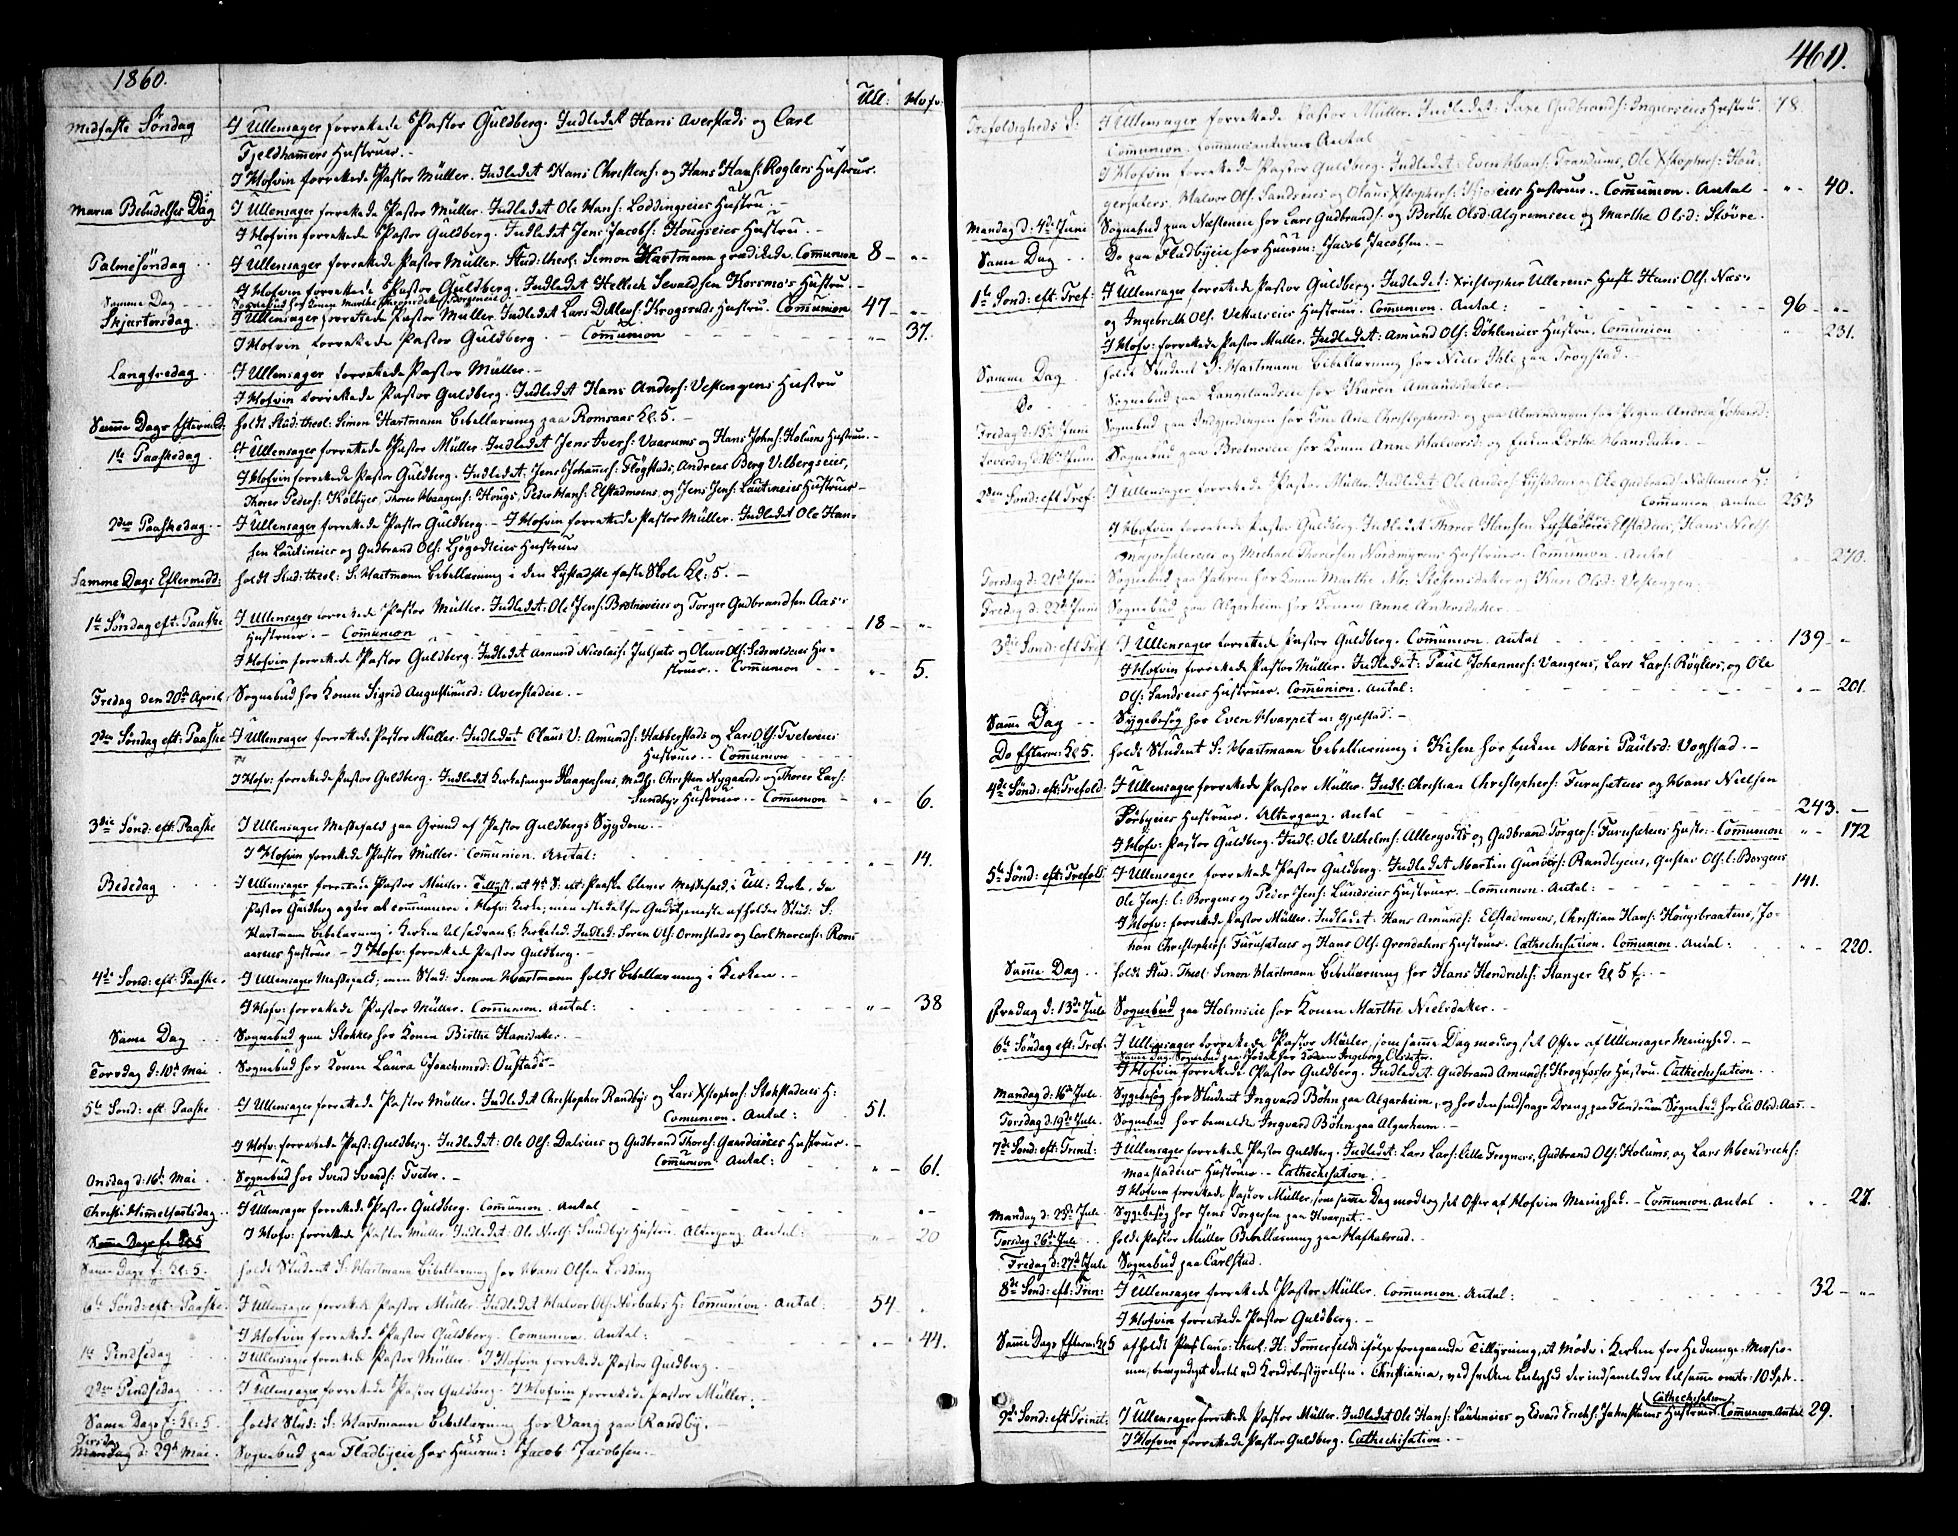 1860.
Ull: Hofv:
Midfaste Söndag I Ullensager forrettede Pastor Guldberg. Indledet Hans Averstads og Carl
Fjeldhamers Hustruer. -
I Hofvin forrettede Pastor Müller. Indledet Hans Christens: og Hans Hans: Roglers Hustruer.
Maria Bebudelses Dag I Ullensager forrettede Pastor Müller. Indledet Ole Hans: Loddingseies Hustru. -
I Hofvin forrettede Pastor Guldberg. Indledet Jens Jacobs: Hougseier Hustru. -
Palmesöndag I Ullensager forrettede Pastor Müller. Stud: theol: Simon Hartmann prædikede. Communion 8 - "-
I Hofvin forrettede Pastor Guldberg. Indledet Hellek Sevaldsen Horsmo's Hustru. -
Samme Dag Sognebud hos Konen Marthe
Skjærtorsdag I Ullensager forrettede Pastor Müller. Indledet Lars Ditlevs: Krogsruds Hustru. Communion 47 - "-
I Hofvin forrettede Pastor Guldberg. - Communion "- 37.
Langfredag I Ullensager forrettede Pastor Müller. -
I Hofvin forrettede Pastor Guldberg. Indledet Hans Anders: Vestengens Hustru
Samme Dags Eftermid: holdt Stud: theol: Simon Hartmann Bibellæsning paa Romsaas Kl: 5. -
1ste Paaskedag I Ullensager forrettede Pastor Müller. Indledet Jens Ivers: Vaarums og Hans Johns: Holums Hustruer. -
I Hofvin forrettede Pastor Guldberg. Indledet: Jens Johannes: Flögstads, Andreas Berg Velbergseier,
Thorer Peders: Kolbyes, Thorer Haagens: Hougs, Peder Hans: Elstadmoens, og Jens Jens: Lautineies Hustruer
2den Paaskedag I Ullensager forrettede Pastor Guldberg. - I Hofvin forrettede Pastor Müller. Indledet Ole Han-
sen Lautineies og Gudbrand Ols: Hustruer
Samme Dags Eftermidd: holdt Stud: theol: S: Hartmann Bibellæsning i den Lystadske faste Skole Kl: 5. -
1ste Söndag eft: Paaske I Ullensager forrettede Pastor Müller. Indledet: Ole Jens: Brotnoeies og Torger Gudbrandsen Aas's
Hustruer. - Communion 18 - "-
I Hofvin forrettede Pastor Guldberg. Indledet Amund Nicolais: og Oliver Ols: Hu-
struer. - Communion "- 5.
Fredag den 20de April Sognebud hos Konen Sigrid Augustinusd: Averstadeie. -
2den Söndag eft: Paaske I Ullensager forrettede Pastor Müller. Indledet Claus V: Amunds: Habberstads og Lars Ols: Tveterseies
Hustruer. - Communion
I Hofv: forrettede Pastor Guldberg. Indledet Kirkesanger Haagensens, Christen Nygaards og Thorer Lars:
Sundbys Hustruer. - Communion "- 6.
3die Sönd: eft: Paaske I Ullensager Messefald paa Grund af Pastor Guldbergs Sygdom. -
I Hofvin forrettede Pastor Müller. Communion. Antal: "- 14.
Bededag I Ullensager forrettede Pastor Müller. Tillyst, at 4de S: eft: Paaske bliver Messefald i Ull: Kirke, da
Pastor Guldberg agter at communicere i Hofv: Kirke; men istedetfor Gudstjeneste afholder Stud: S:
Hartmann Bibellæsning i Kirken ved sædvanl: Kirketid. Indled: Soren Ols: Ormstads og Carl Marcus: Roms
aaseies Hustruer - I Hofv: forrettede Pastor Guldberg. -
4de Sönd: eft: Paaske I Ullensager Messefald, men Stud: Simon Hartmann holdt Bibellæsning i Kirken. -
I Hofv: forrettede Pastor Müller. Communion. Antal: "- 38
Samme Dag Sognebud paa Stokkes hos Konen Birthe Hansdatter. -
Torsdag d: 10de Mai Sognebud hos Konen Laura Joachimsd: Onstad -
5te Sönd: eft: Paaske I Ullensager forrettede Pastor Müller. Indledet Christopher Randbys og Lars Xstophers: Stokstadeies H:
Communion. Antal: 51.
I Hofv: forrettede Past: Guldberg. Indledet: Ole Ols: Dalseies og Gudbrand Thores: Gaardseies Hustruer. -
Communion Antal: "- 61.
Onsdag d: 16de Mai Sognebud hos Svend Svends: Tveter. -
Christi Himmelfartsdag I Ullensager forrettede Pastor Guldberg. Communion. Antal "-
I Hofv: forrettede Pastor Müller. Indledet: Ole Niels: Sundbys Hustru. Altergang. Antal: " 20
Samme Dags E: Kl: 5
Samme Dags E: Kl: 5. holdt Student S: Hartmann Bibellæsning hos Hans Olsen Lodding
6te Sönd: eft: Paaske. I Ullensager forrettede Pastor Müller. Indledet Halvor Ols: H: Communion. Antal: 54.
I Hofvin forrettede Pastor Guldberg. Communion. Antal: "- 44.
1ste Pindsedag I Ullensager forrettede Pastor Müller. I Hofvin forrettede Pastor Guldberg.
2den Pindsedag I Ullensager forrettede Pastor Guldberg. I Hofvin forrettede Pastor Müller.
Samme Dags E: Kl: 5. holdt Stud: S: Hartmann Bibellæsning hos Vang paa Randby.
Tirsdag
Mandag d: 29de Mai. Sognebud paa Fladbyeie hos Huusm: Jacob Jacobsen. -
461).
Trefoldigheds S: I Ullensager forrettede Pastor Müller. Indledet: Gudbrands: Hustru. 78.
Communion. Communicanternes Antal
I Hofvin forrettede Pastor Guldberg. Indledet: Even Hans: Trandums, Ole Xstophers: Hau-
gersæters, Halvor Ols: Sandseies og Olaus Xstophers: Hustruer. - Communion. Antal "- 40.
Mandag d: 4de Juni Sognebud paa Næsteneie hos Lars Gudbrands: og Berthe Olsd: Algrenseie og Marthe Olsd: Stövre.
Samme Dag Do paa Fladbyeie hos Huusm: Jacob Jacobsen. -
1ste Sönd: eft: Tref: I Ullensager forrettede Pastor Guldberg. Indledet: Xristopher Ullerens Hust: Hans Ols: Næs-
og Ingebreth Ols: Vestmoeies Hustruer. Communion. Antal: 96 - "-
I Hofv: forrettede Pastor Müller. Indledet: Amund Ols: Döhleneies Hustru. Communion " 231.
Samme Dag holdt Student S: Hartmann Bibellæsning hos Niels Ihle paa Trogstad.
Do Sognebud paa Langelandseie hos Karen Amundsdatter.
Fredag d: 15de Juni Sognebud paa hos Kone Ane Christophersd: og paa Almenningen hos Pigen Andrea Johansd:
Löverdag d: 16de Juni Sognebud paa Brotnoeie hos Konen Anne Halvorsd: og Enken Dorthe Hansdatter. -
2den Sönd: eft: Tref: I Ullensager forrettede Pastor Müller. Indledet Ole Anders: og Ole Gudbrand: Næsteneies H:
Communion. Antal 253
I Hofvin forrettede Pastor Guldberg. Indledet Thorer Hansen Elstadeies, Hans Niels:
og Michael Thoresen Nordmyrens Hustruer. Communion. Antal " 270.
Torsdag d: 21de Juni Sognebud paa Jahren hos Konen Marthe Steffensdatter og Kari Olsd: Vestengen.
Fredag d: 22de Juni Sognebud paa Algarheim hos Konen Anne Andersdatter.
3die Sönd: eft: Tref I Ullensager forrettede Pastor Guldberg. Communion. Antal 139 -
I Hofvin forrettede Pastor Müller. Indledet: Paul Johannes: Vangens, Lars Lars: Röglers, og Ole
Ols: Sandseies Hustruer. Communion. Antal: "- 201.
Samme Dag Sygebesög hos Even Hvarpet -
Do Efterm: Kl 5. holdt Student S: Hartmann Bibellæsning i Kisen hos Enken Mari Paulsd: Vogstad. -
4de Sönd: eft: Trefold: I Ullensager forrettede Pastor Müller. Indl: Christian Christophers: Furusæteies og Hans Nielsen
Sörbyeies Hustruer. Altergang. Antal 243. -
I Hofv: Pastor Guldberg. Indl: Ole Vilhelms: Allergodts og Gudbrand Torgers: Furusæteies Hustr: Communion "- 172
5te Sönd: eft: Trefold: I Ullensager forrettede Pastor Guldberg. Indledet Martin Gunders: Randbyens, Gustav Ols: l: Borgens
Ole Jens: l: Borgens og Peder Jens: Lundseies Hustruer. - Communion. Antal: 141.
I Hofv: forrettede Pastor Müller. Indledet: Hans Amunds: Elstadmoens, Christian Hans: Hougsbraatens, Jo-
han Christophers: Furusæteies og Hans Ols: Grondalens Hustruer. Cathechisation. Communion. Antal: "- 220.
Samme Dag holdt Stud: Theol: Simon Hartmann Bibellæsning hos Hans Hendrichs: Stanger Kl 5 E. -
Fredag d: 13de Juli Sognebud paa Holmseie hos Konen Marthe Nielsdatter. -
6te Söndag eft: Tref: I Ullensager forrettede Pastor Müller, som samme Dag modtog sit Offer af Ullensager Menighed. -
Samme Dag Sognebud paa hos Konen Ingeborg Olsdatter.
I Hofvin forrettede Pastor Guldberg. Indledet: Gudbrand Amunds: Krogfosses Hustru. Cathechisation.
Mandag d: 16de Juli Sygebesög hos Student Ingvard Böhn paa Algarheim, og hos den sindssvage Dreng paa Flindrum Sognebud hos Eli Olsd: Aas. -
Torsdag d: 19de Juli. Sognebud hos bemeldte Ingvard Böhn paa Algarheim. -
7de Sönd: eft: Trinit: I Ullensager forrettede Pastor Guldberg. Indledet: Lars Lars: Lille Frogners, Gudbrand Ols: Holums, og Lars Hendrichs:
Maastadeies Hustruer. - Cathechisation.
I Hofvin forrettede Pastor Müller, som samme Dag modtog sit Offer af Hofvin Menighed. - Communion. Antal "- 27.
Mandag d: 23de Juli Sygebesög hos Jens Torgersen paa Hvarpet. -
Torsdag 26de Juli. holdt Pastor Müller Bibellæsning paa
Fredag d: 27de Juli Sognebud paa Carlstad.
8de Sönd: eft: Trin: I Ullensager forrettede Pastor Müller. Communion. Antal: 32 - "-
I Hofvin forrettede Pastor Guldberg. -
Samme Dags Efterm: Kl 5 afholdt Cand: theol: H: Sommerfeldt ifölge foregaaende Tillysning, et Möde i Kirken for Hedninge-Missio-
nen, bemyndiget dertil ved Kredsbestyrelsen i Christiania, ved hvilken Leilighed der indsamledes tilsammen omtr: 10 Spdr. -
Cathechisation
9de Sönd: eft: Trinit: I Ullensager forrettede Pastor Müller. Indledet Ole Hans: Lautineies og Edvard Erichs: Jahnstuens Hustruer. Communion Antal 29.
I Hofvin forrettede Pastor Guldberg. Cathechisation. -